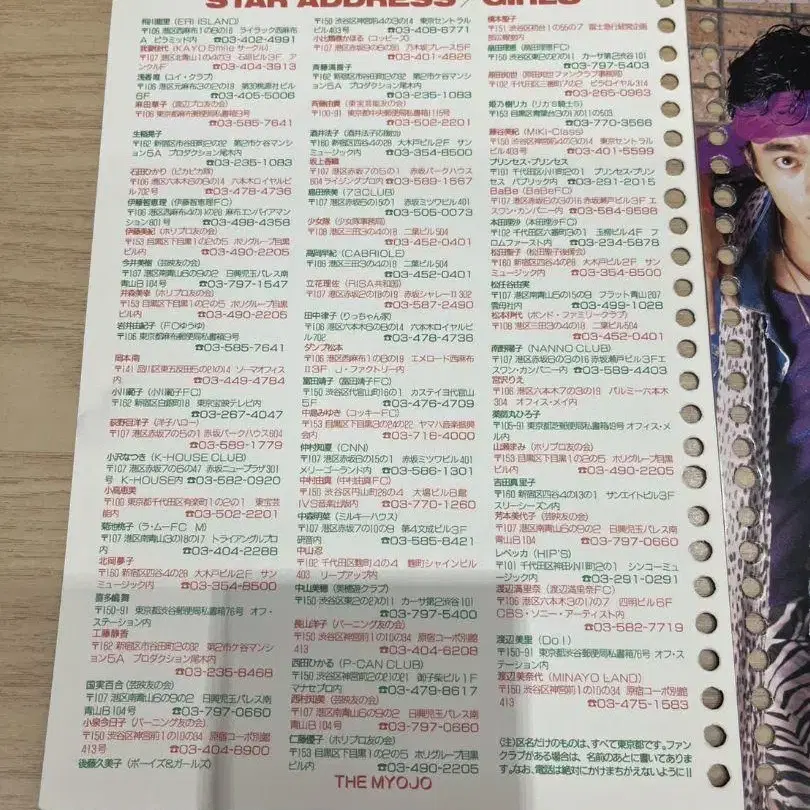 STAR ADDRESS / GIRLS
相川恵里 (ERI ISLAND)
〒106 港区西麻布1の10の16 ライラック西麻布
A ピラミッド内 ☎03-402-4991
〒107 港区北青山1の4の3 石垣ビル3F ア
ンクルF ☎03-404-3913
浅香唯 (ユイ・クラブ)
〒106 港区元麻布3の2の19 第3桃源社ビル
6F ☎03-405-5006
麻田華子 (渡辺プロ友の会)
〒106 東京都麻布郵便局私書箱9号
☎03-585-7641
生稲晃子
〒162 新宿区市谷田町3の32 第2市ケ谷マンシ
ョン5A プロダクション尾木内
☎03-235-1083
石田ひかり (ピカピカ隊)
〒106 港区六本木6の8の14 六本木ロイヤルビ
ル702号 ☎03-478-4736
伊藤智恵理 (伊藤智恵理FC)
〒106 港区西麻布4の17の26 麻布エンパイアマン
ション801号 ☎03-498-4358
伊藤美紀 (ホリプロ友の会)
〒153 目黒区下目黒1の2の5 ホリグループ目黒
ビル内 ☎03-490-2205
今井美樹 (芸映友の会)
〒107 港区南青山6の9の2 日興児玉パレス南
青山B104号 ☎03-797-1547
井森美幸 (ホリプロ友の会)
〒153 目黒区下目黒1の2の5 ホリグループ目黒
ビル内 ☎03-490-2205
岩井由紀子 (FCゆうゆ)
〒106 東京都麻布郵便局私書箱9号
☎03-585-7641
岡本南
〒141 品川区東五反田5の21の14 ソーマオフィス
内 ☎03-449-4784
小川範子 (小川範子FC)
〒162 新宿区白銀町18 東京宝映テレビ内
☎03-267-4047
荻野目洋子 (洋子ハロー)
〒107 港区赤坂7の5の1 赤坂パークハウス604
☎03-589-1779
小沢なつき (K-HOUSE CLUB)
〒107 港区赤坂7の6の47 赤坂ニュープラザ301
号 K-HOUSE内 ☎03-582-0920
小高恵美
〒100 東京都千代田区有楽町1の2の1 東宝芸
能内 ☎03-502-2201
菊池桃子 (ラ・ムーFC M)
〒107 港区南青山3の18の17 トライアングルプロ
内 ☎03-404-2288
北岡夢子
〒160 新宿区四谷4の28 大木戸ビル2F サン
ミュージック内 ☎03-354-8500
喜多嶋舞
〒150-91 東京都渋谷郵便局私書箱76号 オフ・
ステーション内
工藤静香
〒162 新宿区市谷田町3の32 第2市ケ谷マンシ
ョン5A プロダクション尾木内
☎03-235-8468
国実百合 (芸映友の会)
〒107 港区南青山6の9の2 日興児玉パレス南
青山B104号 ☎03-797-0660
小泉今日子 (バーニング友の会)
〒150 渋谷区神宮前1の10の34 原宿コーポ別館
413号 ☎03-404-8900
後藤久美子 (ボーイズ&ガールズ)
〒150 渋谷区神宮前4の3の14 東京セントラル
403号 ☎03-408-6771
小比類巻かほる (コッピーズ)
〒107 港区赤坂9の6の30 乃木坂プレース5F
☎03-401-4826
斉藤満喜子
〒162 新宿区市谷田町3の32 第2市ケ谷マンシ
ョン5A プロダクション尾木内
☎03-235-1083
斉藤由貴 (東宝芸能友の会)
〒100-91 東京都中央郵便局私書箱115号
☎03-502-2201
酒井法子 (酒井法子応援団)
〒160 新宿区四谷4の28 大木戸ビル2F サン
ミュージック内 ☎03-354-8500
坂上香織
〒107 港区赤坂7の5の1 赤坂パークハウス
604 ライジングプロ内 ☎03-589-1567
島田奈美 (73CLUB)
〒107 港区赤坂7の5の1 赤坂ミツワビル401
☎03-505-0073
少女隊 (少女隊事務局)
〒108 港区三田3の4の18 二葉ビル504
☎03-452-0401
高岡早紀 (CABRIOLE)
〒108 港区三田3の4の18 二葉ビル504
☎03-452-0401
立花理佐 (RISA共和国)
〒107 港区赤坂2の18の19 赤坂シャレーII 302
☎03-587-2490
田中律子 (りっちゃん家)
〒106 港区六本木6の8の14 六本木ロイヤルビル
702 ☎03-478-4736
ダンプ松本
〒106 港区西麻布1の8の19 エメロード西麻布
II3F J・ファクトリー内
富田靖子 (富田靖子FC)
〒150 渋谷区代官山町16の1 カスティヨ代官山
5F ☎03-476-4709
中島みゆき (コッキーFC)
〒153 目黒区下目黒3の24の22 ヤマハ音楽振興
会内 ☎03-716-4000
仲村知夏 (CNN)
〒107 港区赤坂7の5の1 赤坂ミツワビル401
メリーゴーランド内 ☎03-586-1301
中村由真 (中村由真FC)
〒150 渋谷区円山町28の4 大場ビルB館
IVS音楽出版内 ☎03-770-1260
中森明菜 (ミルキーハウス)
〒107 港区赤坂7の10の9 第4文成ビル3F
研音内 ☎03-585-8421
中山忍
〒102 千代田区麹町4の4 麹町シャインビル
403 リーブアップ内
中山美穂 (美穂遊クラブ)
〒150 渋谷区東2の27の11 カーサ第2渋谷101
☎03-797-5400
長山洋子 (バーニング友の会)
〒150 渋谷区神宮前1の10の34 原宿コーポ別館
413号 ☎03-404-6208
西田ひかる (P-CAN CLUB)
〒150 渋谷区神宮前2の21の21 御子柴ビル1F
マナセプロ内 ☎03-479-8617
西村知美 (芸映友の会)
〒107 港区南青山6の9の2 日興児玉パレス南
青山B104号 ☎03-797-0660
仁藤優子 (ホリプロ友の会)
〒153 目黒区下目黒1の2の5 ホリグループ目黒
ビル内 ☎03-490-2205
橋本聖子
〒151 渋谷区初台1の55の7 富士急行経営企画
部広報室内
畠田理恵 (畠田理恵FC)
〒150 渋谷区東2の27の11 カーサ第2渋谷101
☎03-797-5403
ピラロイヤル314
☎03-265-0963
姫乃樹リカ (リカS騎士S)
〒153 目黒区青葉台3の1の
☎03-770-3566
藤谷美紀 (MiKi-Class)
〒150 渋谷区神宮前4の3の14 東京セントラル
403号 ☎03-401-5599
プリンセス・プリンセス
〒101 千代田区小川町2の1 プリンセス・プリン
セス パブリック内 ☎03-291-2015
BaBe (BaBeFC)
〒107 港区赤坂8の3の16 赤坂瀬戸ビル3F エ
スワン・カンパニー内 ☎03-584-9598
本田理沙 (本田理沙FC)
〒102 千代田区六番町3の1 玉柳ビル4F フ
ロムファースト内 ☎03-234-5878
松田聖子 (松田聖子後援会)
〒160 新宿区四谷4の28 大木戸ビル2F サン
ミュージック内 ☎03-354-8500
松任谷由実
〒107 港区南青山5の15の9 フラット青山207
雲母社内 ☎03-499-1028
松本伊代 (ボンド・ファミリークラブ)
〒108 港区三田3の4の18 二葉ビル504
☎03-452-0401
南野陽子 (NANNO CLUB)
〒107 港区赤坂8の3の16 赤坂瀬戸ビル3Fエ
スワン・カンパニー内 ☎03-589-4403
宮沢りえ
〒106 港区六本木7の3の19 パルミー六本木
304 オフィス・メイ内
薬師丸ひろ子
〒105-91 東京都芝郵便局私書箱49号 オフィス・メ
ル内
山瀬まみ (ホリプロ友の会)
〒153 目黒区下目黒1の2の5 ホリグループ目黒
ビル内 ☎03-490-2205
吉田真里子
〒160 新宿区四谷4の13の1 サンエイトビル3F
スリーシーズン内
芳本美代子 (芸映友の会)
〒107 港区南青山6の9の2 日興児玉パレス南
青山B104号 ☎03-797-0660
レベッカ (HIP'S)
〒101 千代田区神田小川町2の1 シンコーミュ
ージック内 ☎03-291-0291
渡辺満里奈 (渡辺満里奈FC)
〒106 港区六本木3の17の7 四明ビル6F
CBS・ソニー・アーティスト内
☎03-582-7719
渡辺美里 (Do!)
〒150-91 東京都渋谷郵便局私書箱76号 オフ・ス
テーション内
渡辺美奈代 (MINAYO LAND)
〒150 渋谷区神宮前1の10の34 原宿コーポ別館
413号 ☎03-475-1583
(注)区名だけのものは、すべて東京都です。ファン
クラブがある場合は、名前のあとに書いてありま
す。なお、電話は絶対にかけまちがえないように!!
THE MYOJO